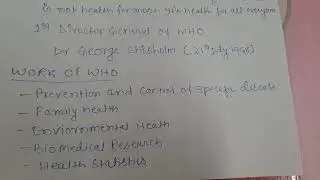 is not health for
1st Director General of WHO
Dr George Chisholm (21st July 1948)
WORK OF WHO
- Prevention and control of specific disease
- Family health
- Enviornmental Health
- Biomedical Research
- Health Statistics